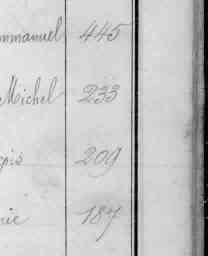 mmanuel 445
Michel 233
209
187